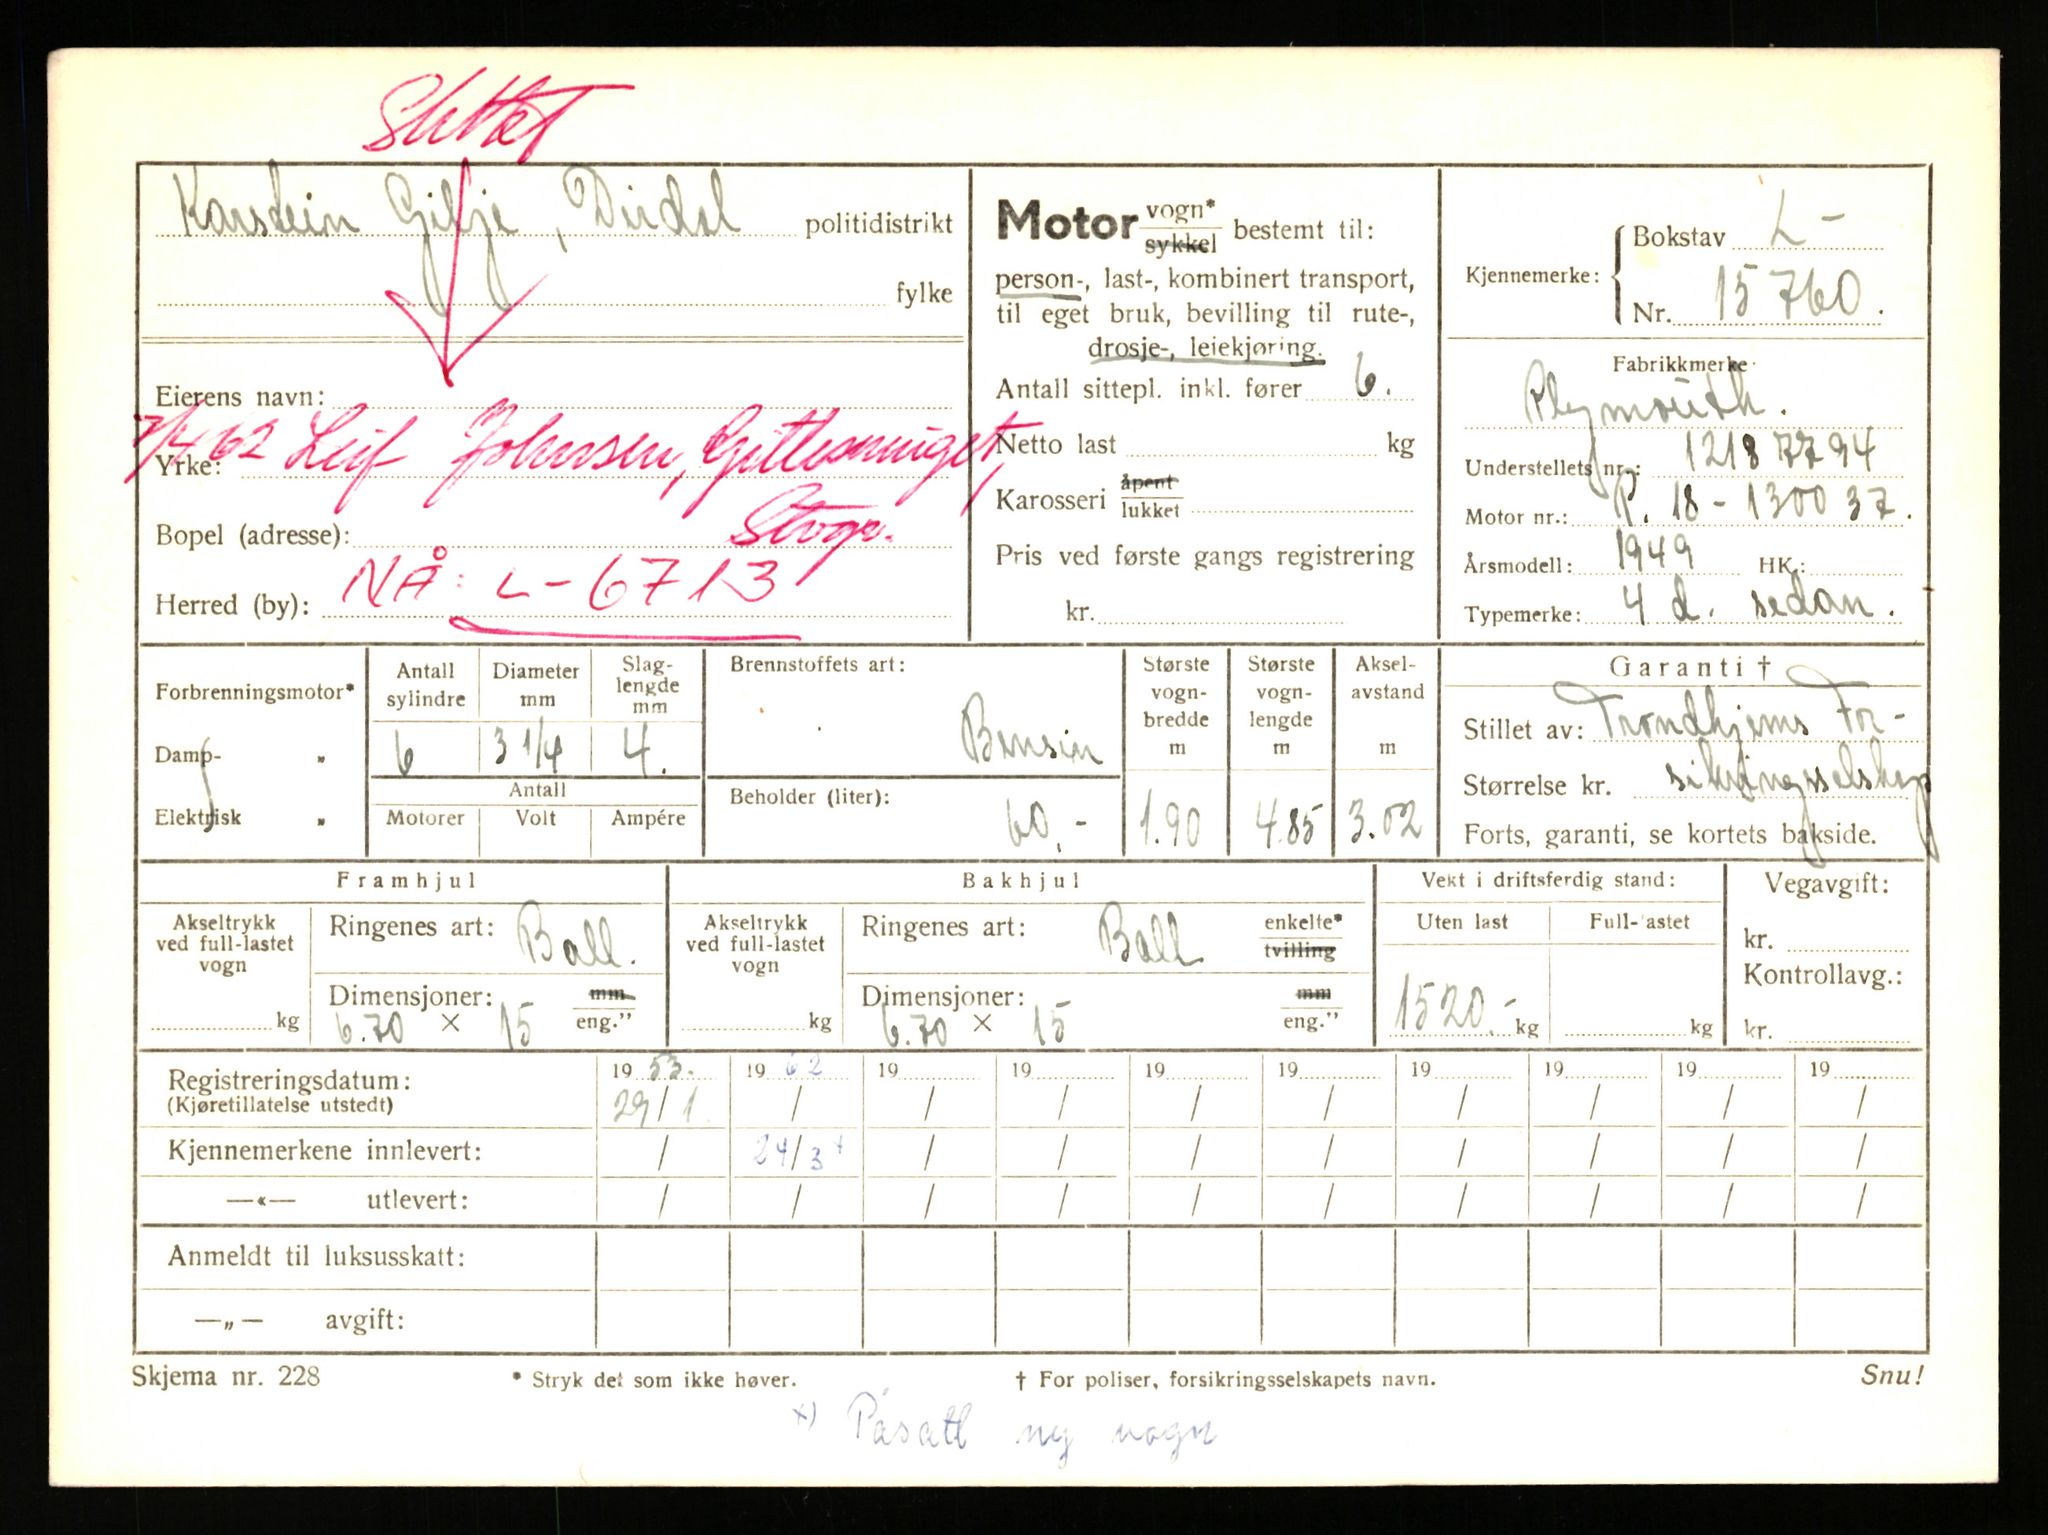 Slettet
Karstein Gilje, Dirdal politidistrikt
fylke
Eierens navn:
7/4 62 Leif Johnsen,
Yrke:
Bopel (adresse):
NÅ: L-6713
Herred (by):
Motor vogn* sykkel bestemt til:
person-, last-, kombinert transport,
til eget bruk, bevilling til rute-,
drosje-, leiekjøring.
Antall sittepl. inkl. fører 6.
Netto last kg
Karosseri åpent lukket
Pris ved første gangs registrering
kr.
Kjennemerke: Bokstav L-
Nr. 15760.
Fabrikkmerke
Plymouth.
Understellets nr.: 12187794
Motor nr.: P. 18 - 130037.
Årsmodell: 1949 HK.:
Typemerke: 4 d. sedan.
Forbrenningsmotor*
Damp- „
Elektrisk „
Antall sylindre
6
Diameter mm
3 1/4
Slag-
lengde
mm
4.
Antall
Motorer Volt Ampére
Brennstoffets art:
Bensin
Beholder (liter):
60.-
Største
vogn-
bredde
m
1.90
Største
vogn-
lengde
m
4.85
Aksel-
avstand
m
3.02
Garanti †
Stillet av: Trondhjems For-
sikringsselskap
Størrelse kr.
Forts, garanti, se kortets bakside.
Framhjul
Akseltrykk
ved full-lastet
vogn
kg
Ringenes art: Ball.
Dimensjoner: mm
6.70 × 15 eng."
Bakhjul
Akseltrykk
ved full-lastet
vogn
kg
Ringenes art: Ball enkelte* tvilling
Dimensjoner: mm
6.70 × 15 eng."
Vekt i driftsferdig stand:
Uten last Full-lastet
1520.- kg kg
Vegavgift:
kr.
Kontrollavg.:
kr.
Registreringsdatum: 19 53. 19 62 19 19 19 19 19 19 19 19
(Kjøretillatelse utstedt) 29/1. / / / / / / / / /
Kjennemerkene innlevert: / 24/3 + / / / / / / / /
—«— utlevert: / / / / / / / / / /
Anmeldt til luksusskatt:
—„— avgift:
Skjema nr. 228 * Stryk det som ikke høver. † For poliser, forsikringsselskapets navn. Snu!
x) Påsatt ny vogn